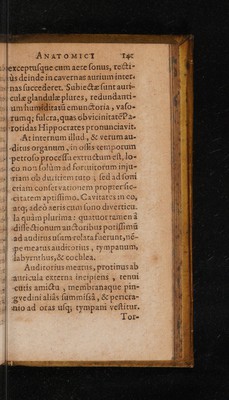 ANATOMICI 140
exceptusque cum aere sonus, recti-
ùs deinde in cavernas aurium inter-
nas succederet. Subiectæ sunt auri-
culæ glandulæ plures, redundanti-
um humiditatū emunctoria, vaso-
rumq; fulcra, quas ob vicinitatē Pa-
rotidas Hippocrates pronunciavit.
At internum illud, & verum au-
ditus organum, in ossis temporum
petroso processu extructum est, lo-
co non solùm ad fortuitorum inju-
riam ob duritiem tuto; sed ad soni
etiam conservationem propter sic-
citatem aptissimo. Cavitates in eo,
atq; adeò aëris cius sinus diverticu-
la quàm plurima: quatuor tamen à
dissectionum auctoribus potissimū
ad auditus usum relata fuerunt, nē-
pe meatus auditorius, tympanum,
labyrinthus, & cochlea.
Auditorius meatus, protinus ab
auricula externa incipiens, tenui
cutis amictu, membranaque pin-
gvedini aliàs summissâ, & pericra-
nio ad oras usq; tympani vestitur.
Tor-